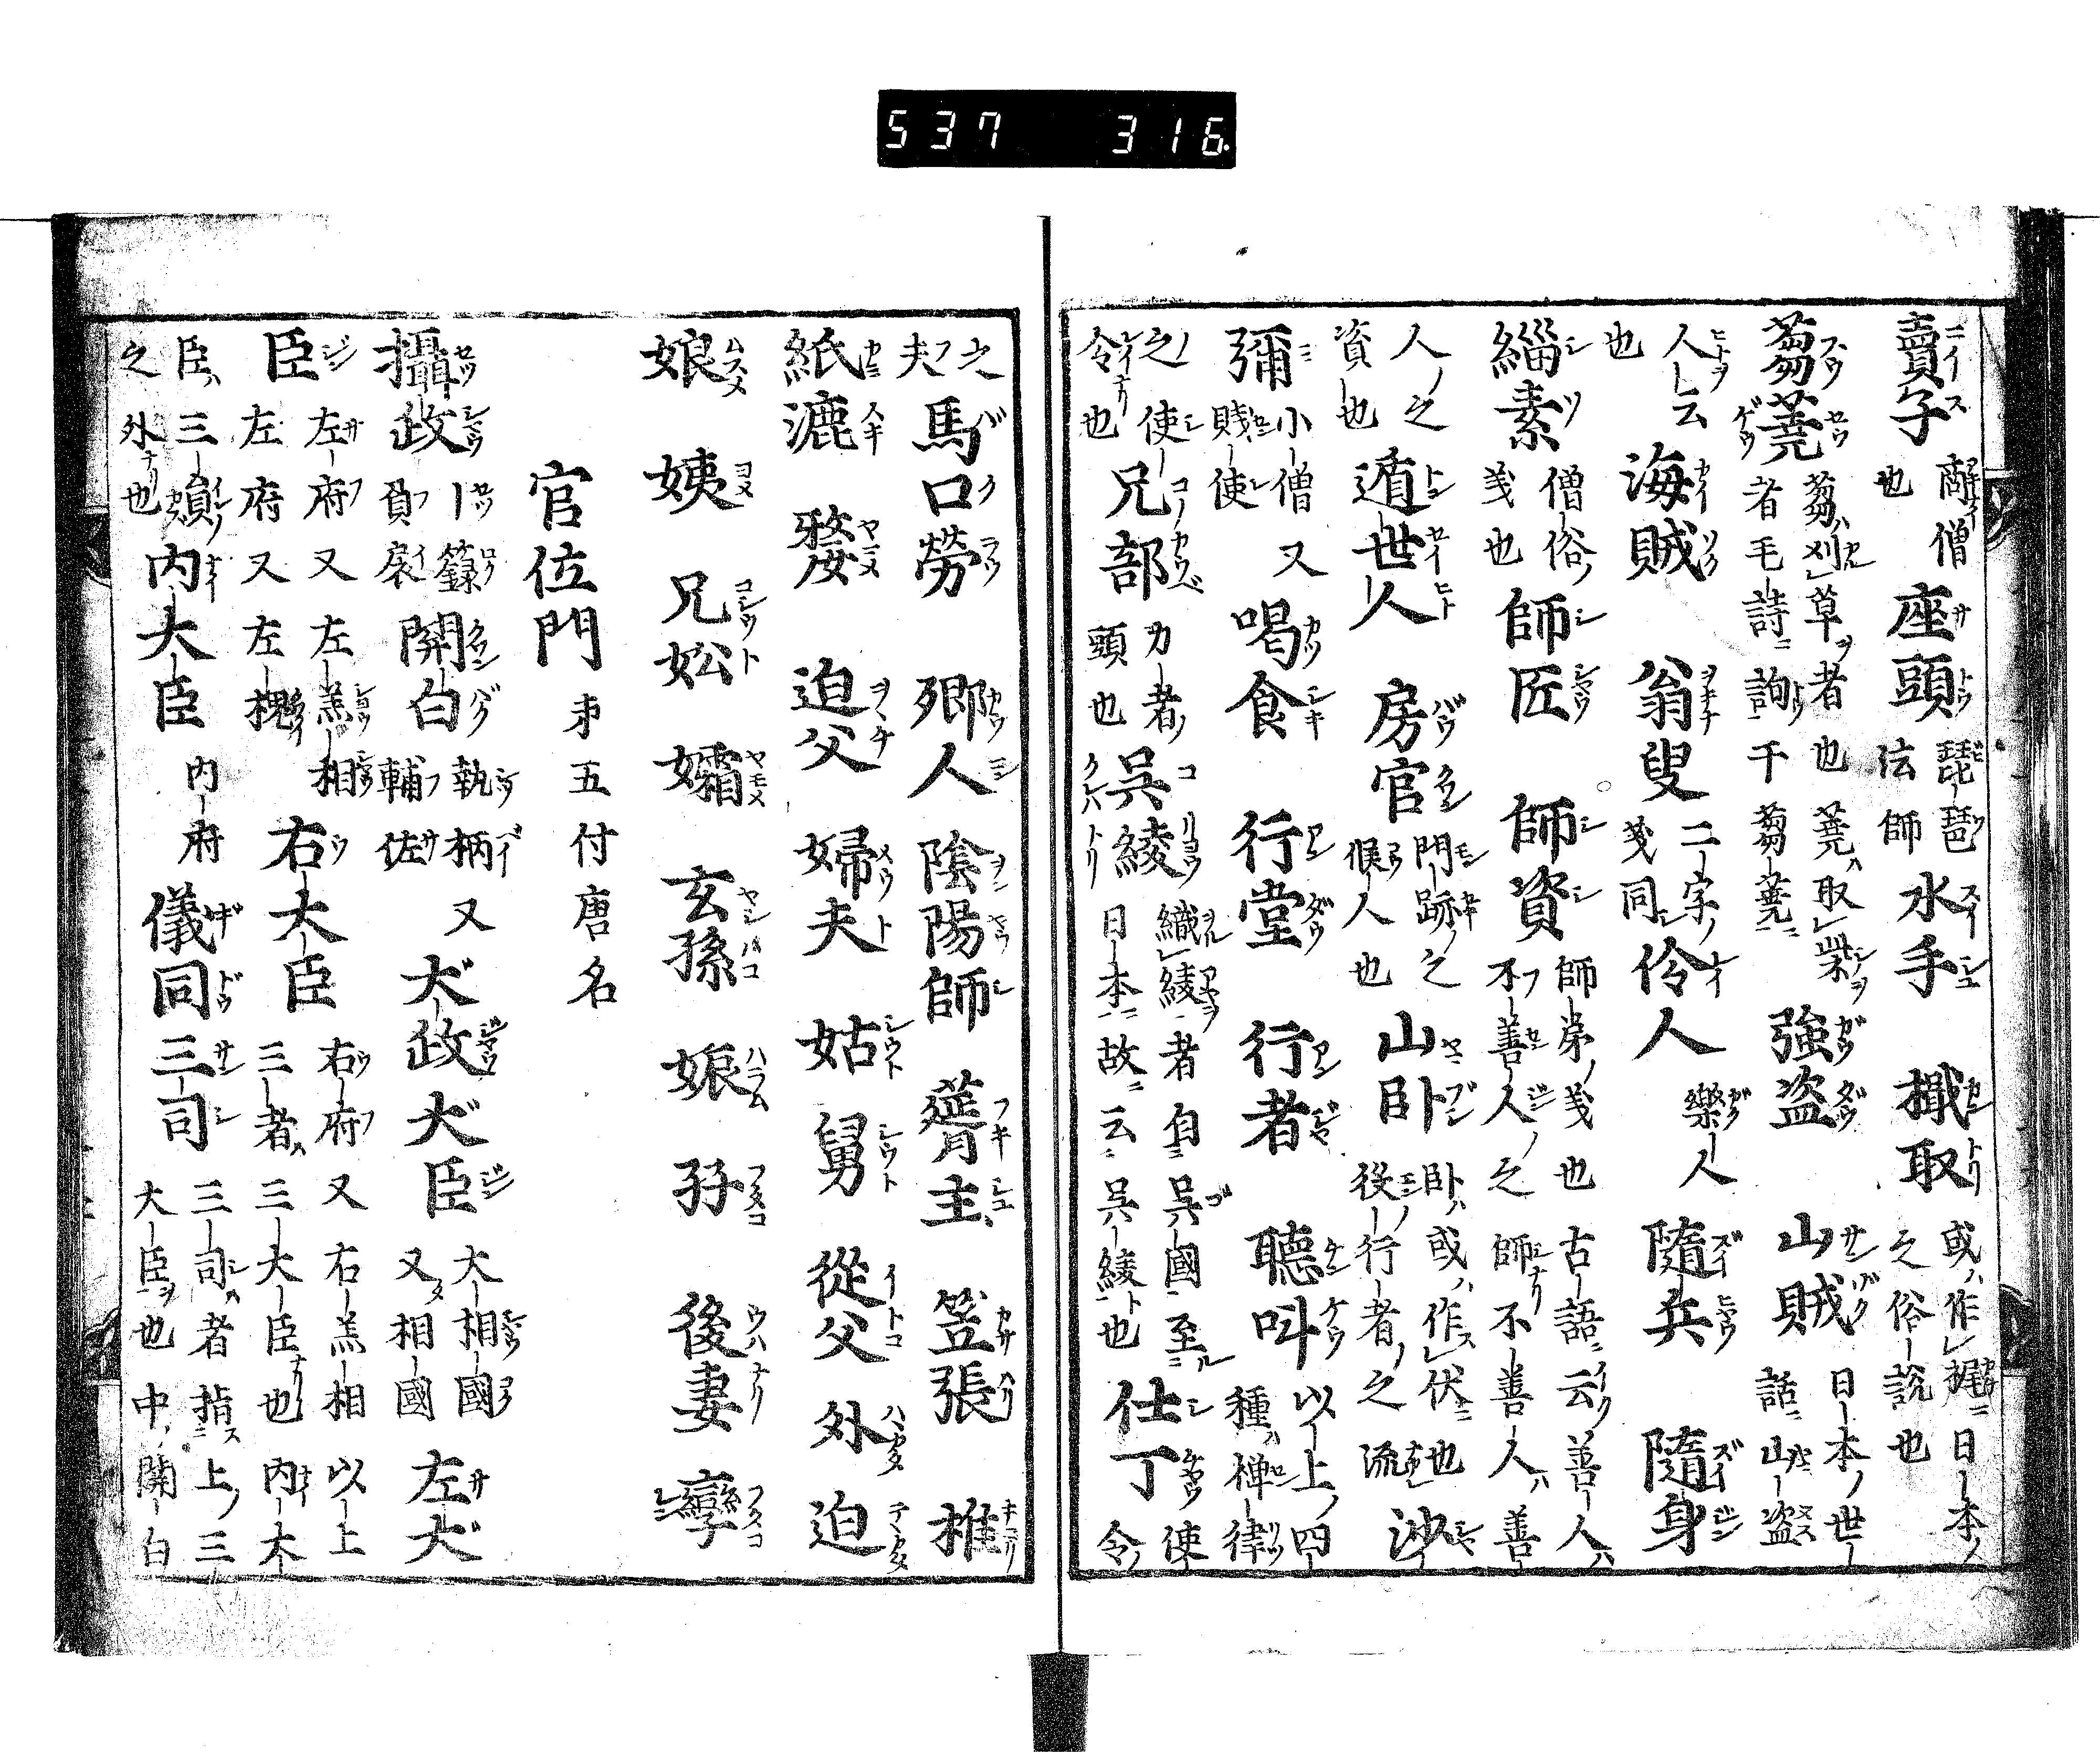 537 316
賣子 商僧也 座頭 琵琶法師 水手 檝取 或作梶日本之俗說也
蒭蕘 蒭刈草者也蕘取柴者毛詩詢于蒭蕘 強盗 山賊 日本世話山盗
人云也 海賊 翁叟 二字義同 伶人 樂人 隨兵 隨身
緇素 僧俗義也 師匠 師資 師弟義也古語云善人不善人之師不善人善
人之資也 遁世人 房官 門跡之候人也 山卧 卧或作伏也役行者之流 沙
彌 小僧又賎使 喝食 行堂 行者 聽呌 以上四種禅律
之使令也 兄部 力者頭也 呉綾 織綾者自呉國至日本故云呉綾也 仕丁 使令
之夫 馬口勞 郷人 陰陽師 蕦主 笠張 樵
紙漉 婺 迫父 婦夫 姑 舅 從父 外 迫
娘 姨 兄妐 孀 玄孫 娠 孖 後妻 孿
官位門 苐五付唐名
攝政 籙負扆 関白 執柄又輔佐 大政大臣 大相國又相國 左大
臣 左府又左羔相左府又左槐 右大臣 右府又右羔相以上三者三大臣也内大
臣三槓之外也 内大臣 内府 儀同三司 三司者指上三大臣也中関白